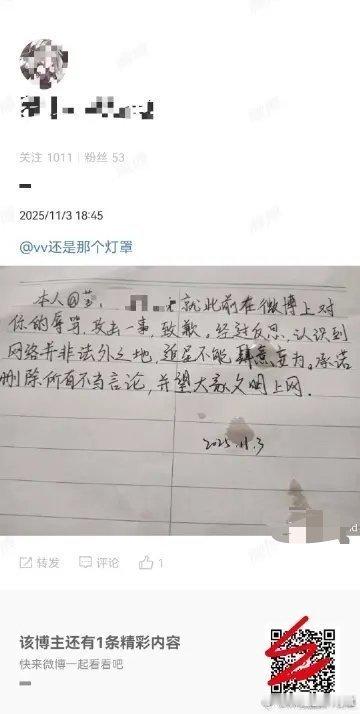 关注 1011 | 粉丝 53
2025/11/3 18:45
@vv还是那个灯罩
本人@ 就此前在微博上对
你的辱骂,攻击一事,致歉。经过反思,认识到
网络并非法外之地,追星不能肆意妄为。承诺
删除所有不当言论,并望大家文明上网.
2025.11.3
转发 评论 1
该博主还有1条精彩内容
快来微博一起看看吧